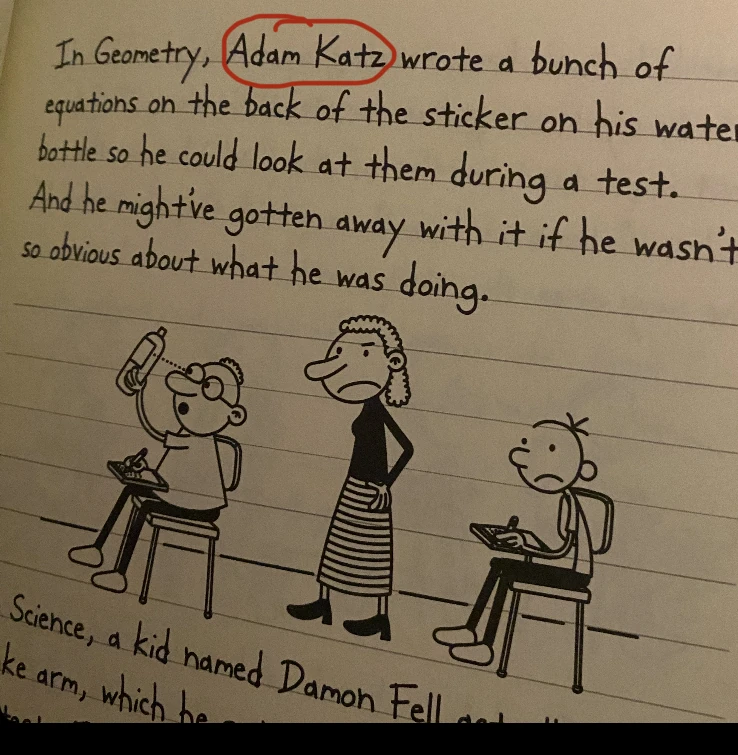 In Geometry, Adam Katz wrote a bunch of
equations on the back of the sticker on his water
bottle so he could look at them during a test.
And he might've gotten away with it if he wasn't
so obvious about what he was doing.
Science, a kid named Damon Fell
ke arm, which he